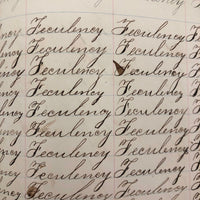 Feculency Feculency
Feculency Feculency
Feculency Feculency
Feculency Feculency
Feculency Feculency
Feculency Feculency
Feculency Feculency
Feculency Feculency
Feculency Feculency
Feculency Feculency